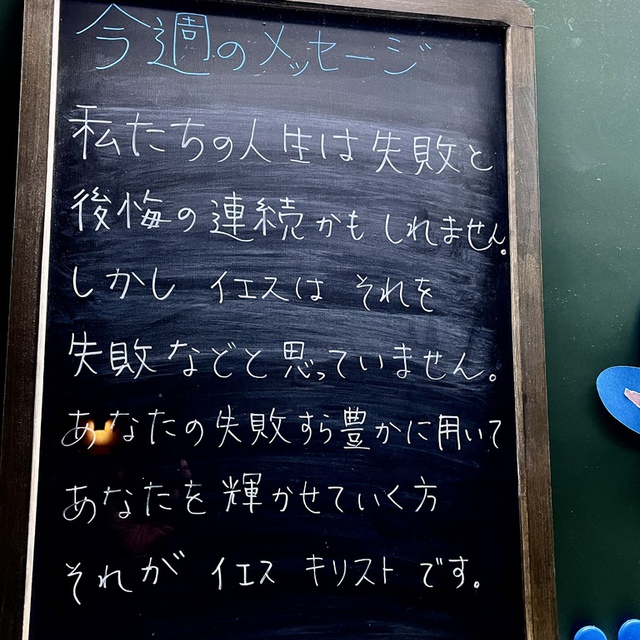 今週のメッセージ
私たちの人生は失敗と
後悔の連続かもしれません。
しかし イエスは それを
失敗などと思っていません。
あなたの失敗すら豊かに用いて
あなたを輝かせていく方
それが イエス キリスト です。